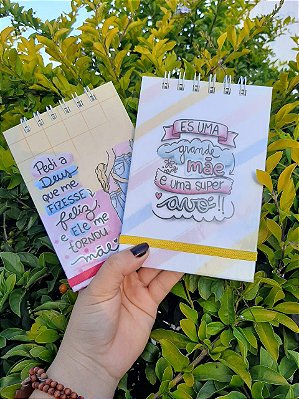 Pedi a
Deus
que me
FIZESSE
feliz
e ELE me
TORNOU
mãe
ÉS UMA
grande
mãe
e uma super
avó!!